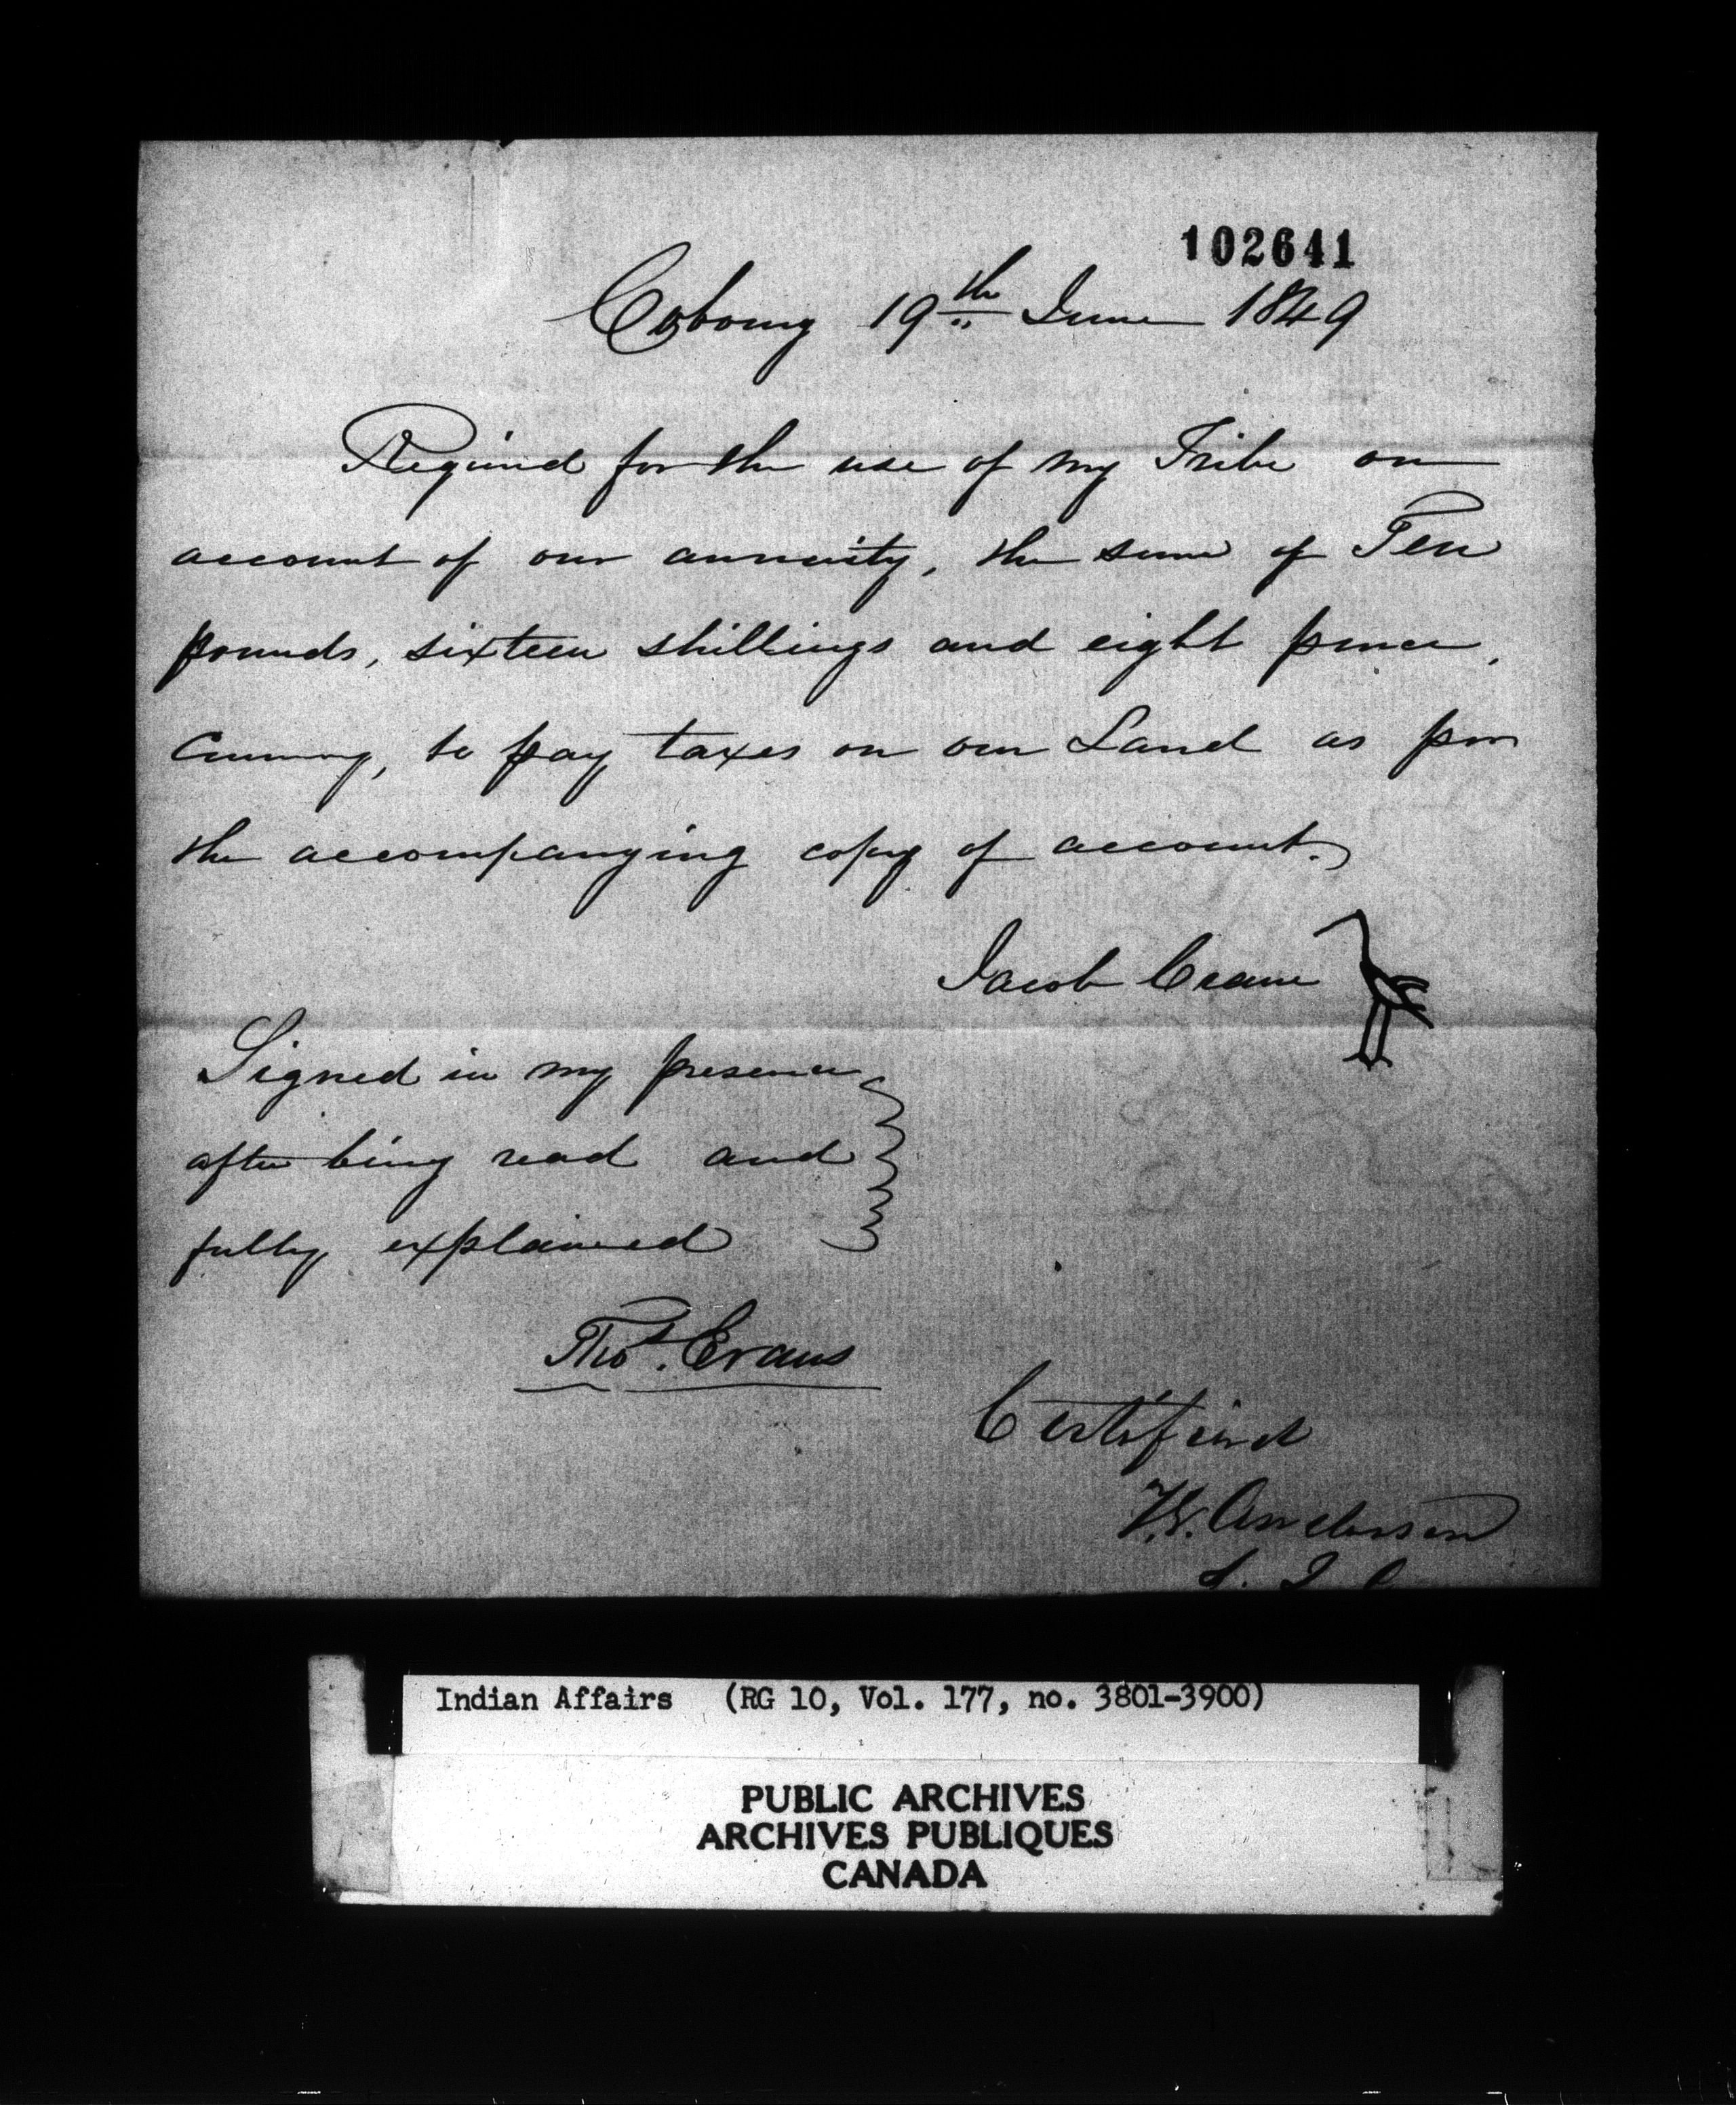 102641
Cobourg 19th June 1849
Required for the use of my Tribe on
account of our annuity, the sum of Ten
pounds, sixteen shillings and eight pence,
Currency, to pay taxes on our Land as per
the accompanying copy of account.
Jacob Crane
Signed in my presence
after being read and
fully explained
Thos. Evans
Certified
T.G. Anderson
Indian Affairs (RG 10, Vol. 177, no. 3801-3900)
PUBLIC ARCHIVES
ARCHIVES PUBLIQUES
CANADA